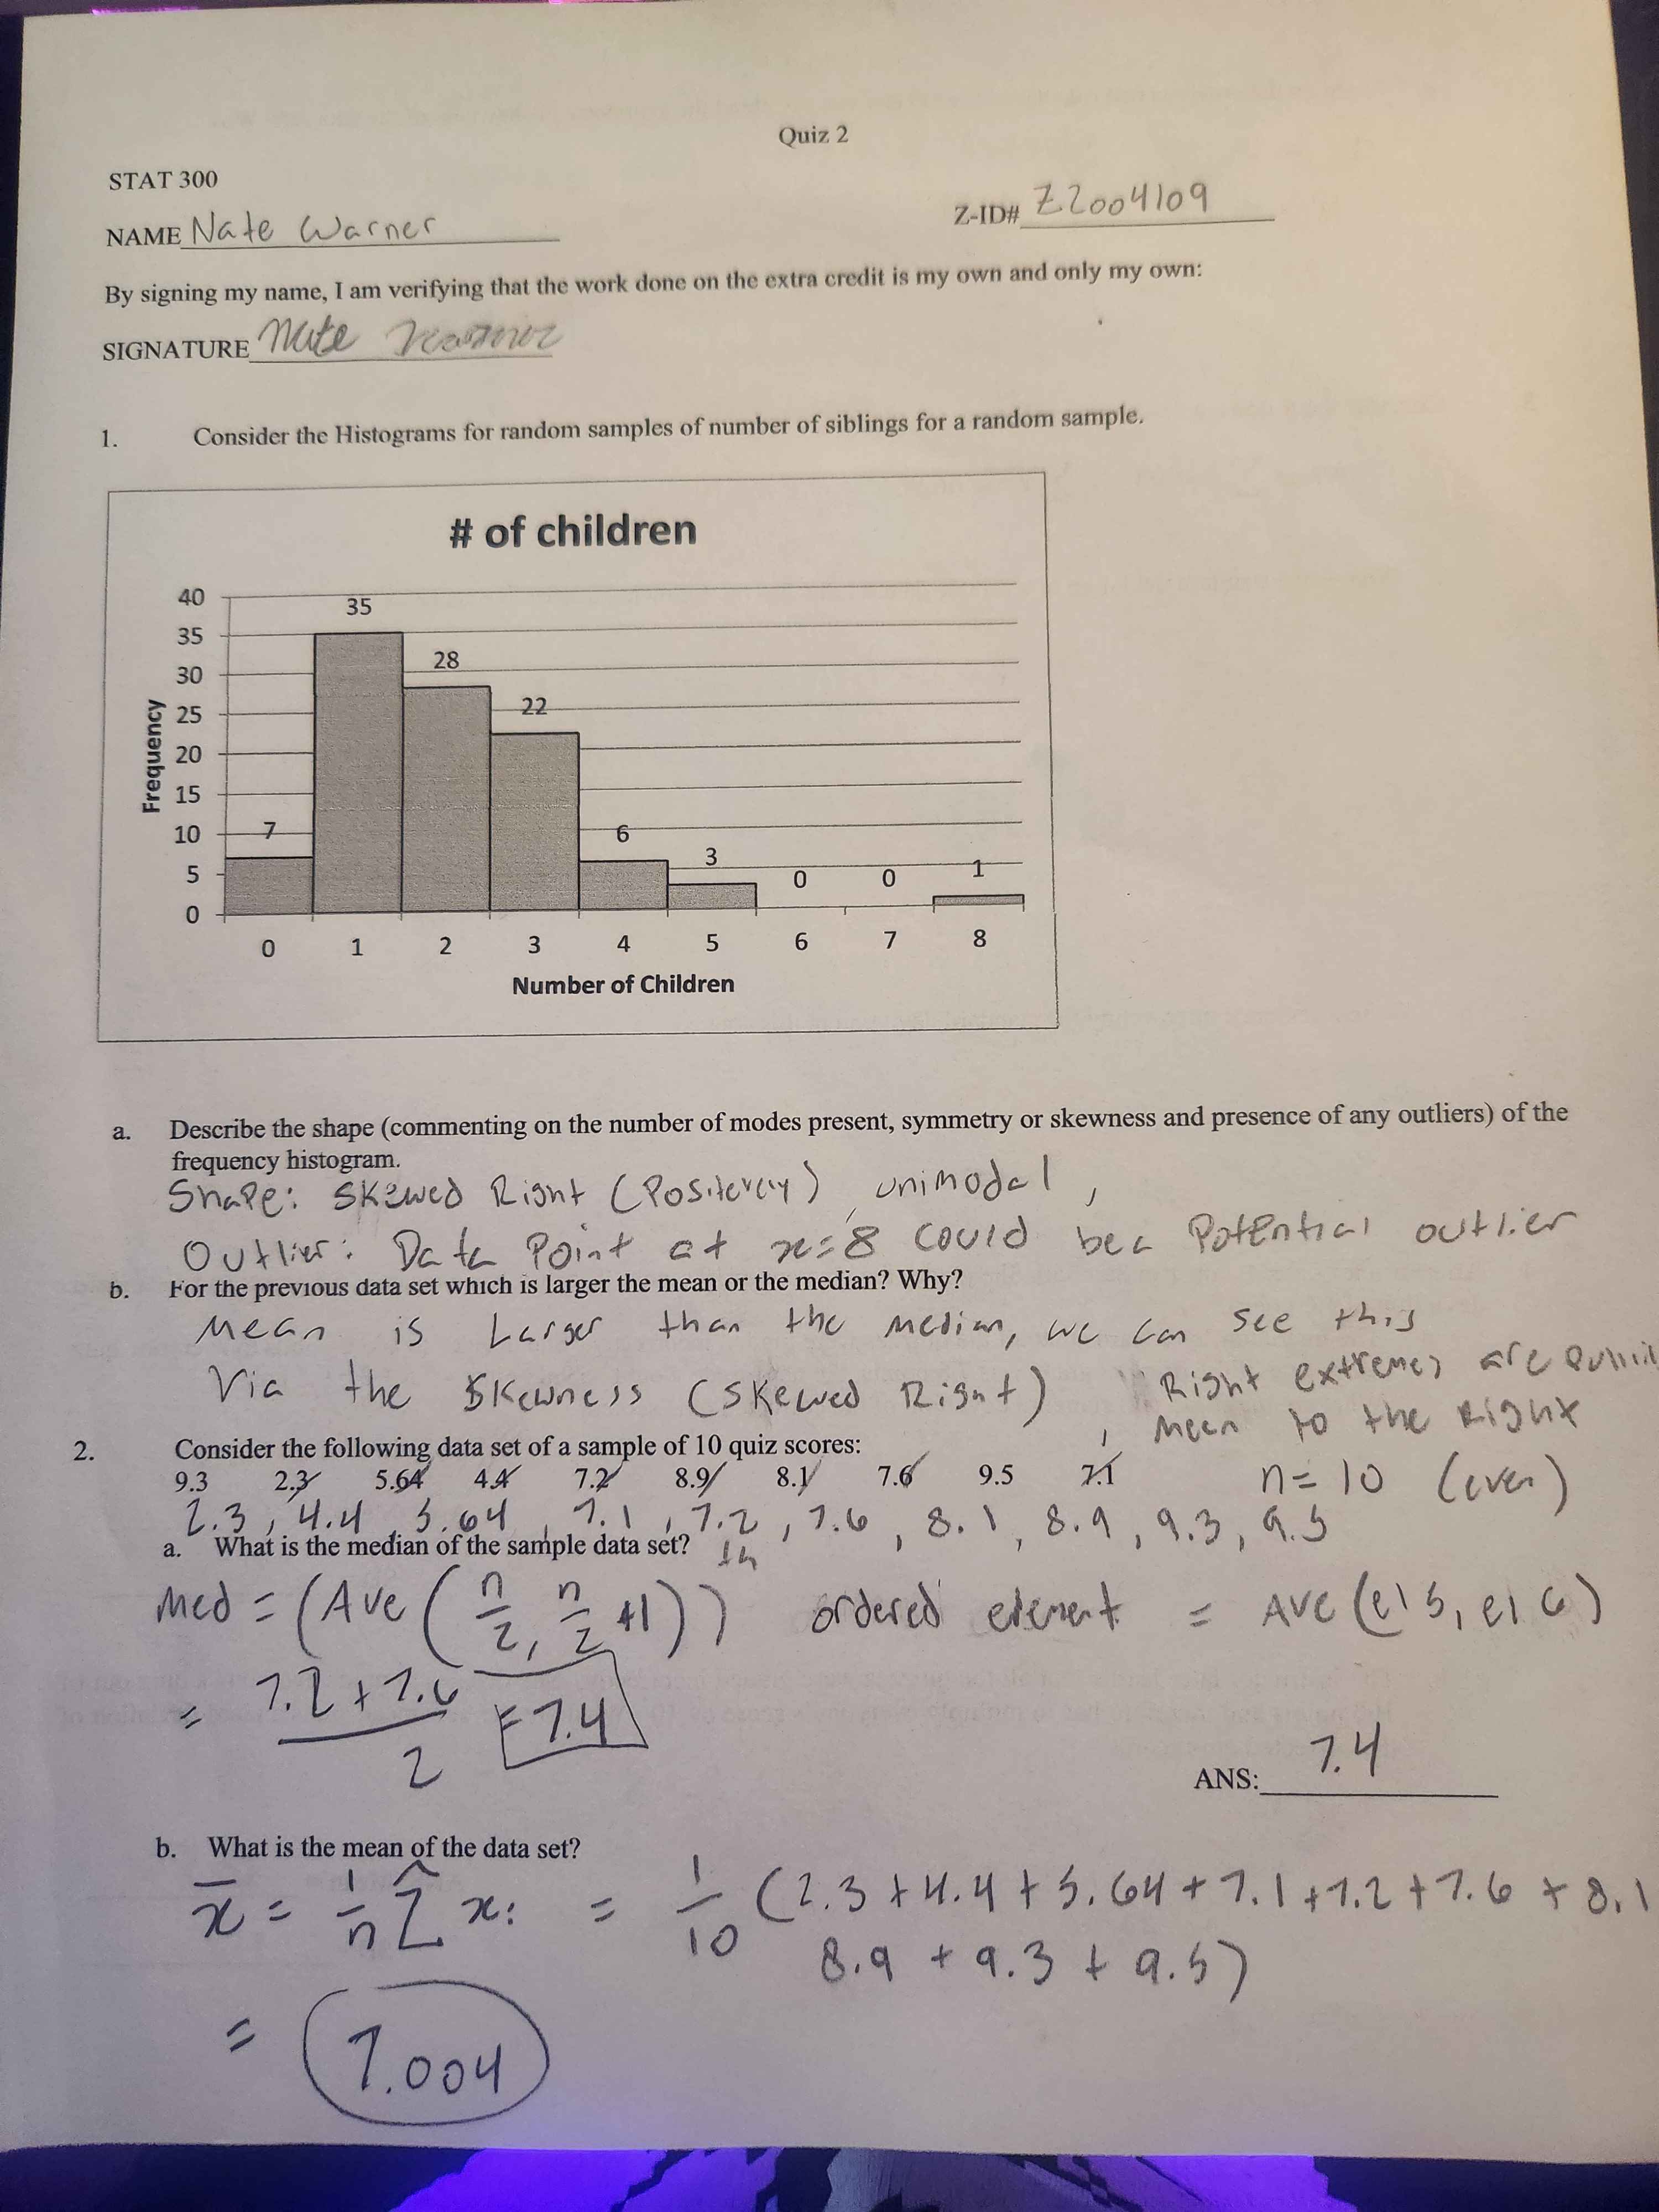 Quiz 2
STAT 300
NAME Nate Warner
Z-ID# Z2004109
By signing my name, I am verifying that the work done on the extra credit is my own and only my own:
SIGNATURE Nate Warner
1. Consider the Histograms for random samples of number of siblings for a random sample.
# of children
40
35
30
25
20
15
10
5
0
Frequency
7 35 28 22 6 3 0 0 1
0 1 2 3 4 5 6 7 8
Number of Children
a. Describe the shape (commenting on the number of modes present, symmetry or skewness and presence of any outliers) of the
frequency histogram.
Shape: Skewed Right (Positively), unimodal,
Outlier: Data Point at x=8 could be a Potential outlier
b. For the previous data set which is larger the mean or the median? Why?
Mean is Larger than the median, we can see this
Via the Skewness (Skewed Right), Right extremes are
mean to the Right
2. Consider the following data set of a sample of 10 quiz scores:
9.3 2.3 5.64 4.4 7.2 8.9 8.1 7.6 9.5 7.1
n = 10 (even)
2.3, 4.4 5.64, 7.1, 7.2, 7.6, 8.1, 8.9, 9.3, 9.5
a. What is the median of the sample data set?
Med = (Ave(n/2, n/2 +1))th ordered element = Ave(el 5, el 6)
= 7.2 + 7.6 / 2 = 7.4
ANS: 7.4
b. What is the mean of the data set?
x̄ = 1/n Σ xi = 1/10 (2.3 + 4.4 + 5.64 + 7.1 + 7.2 + 7.6 + 8.1
8.9 + 9.3 + 9.5)
= 7.004